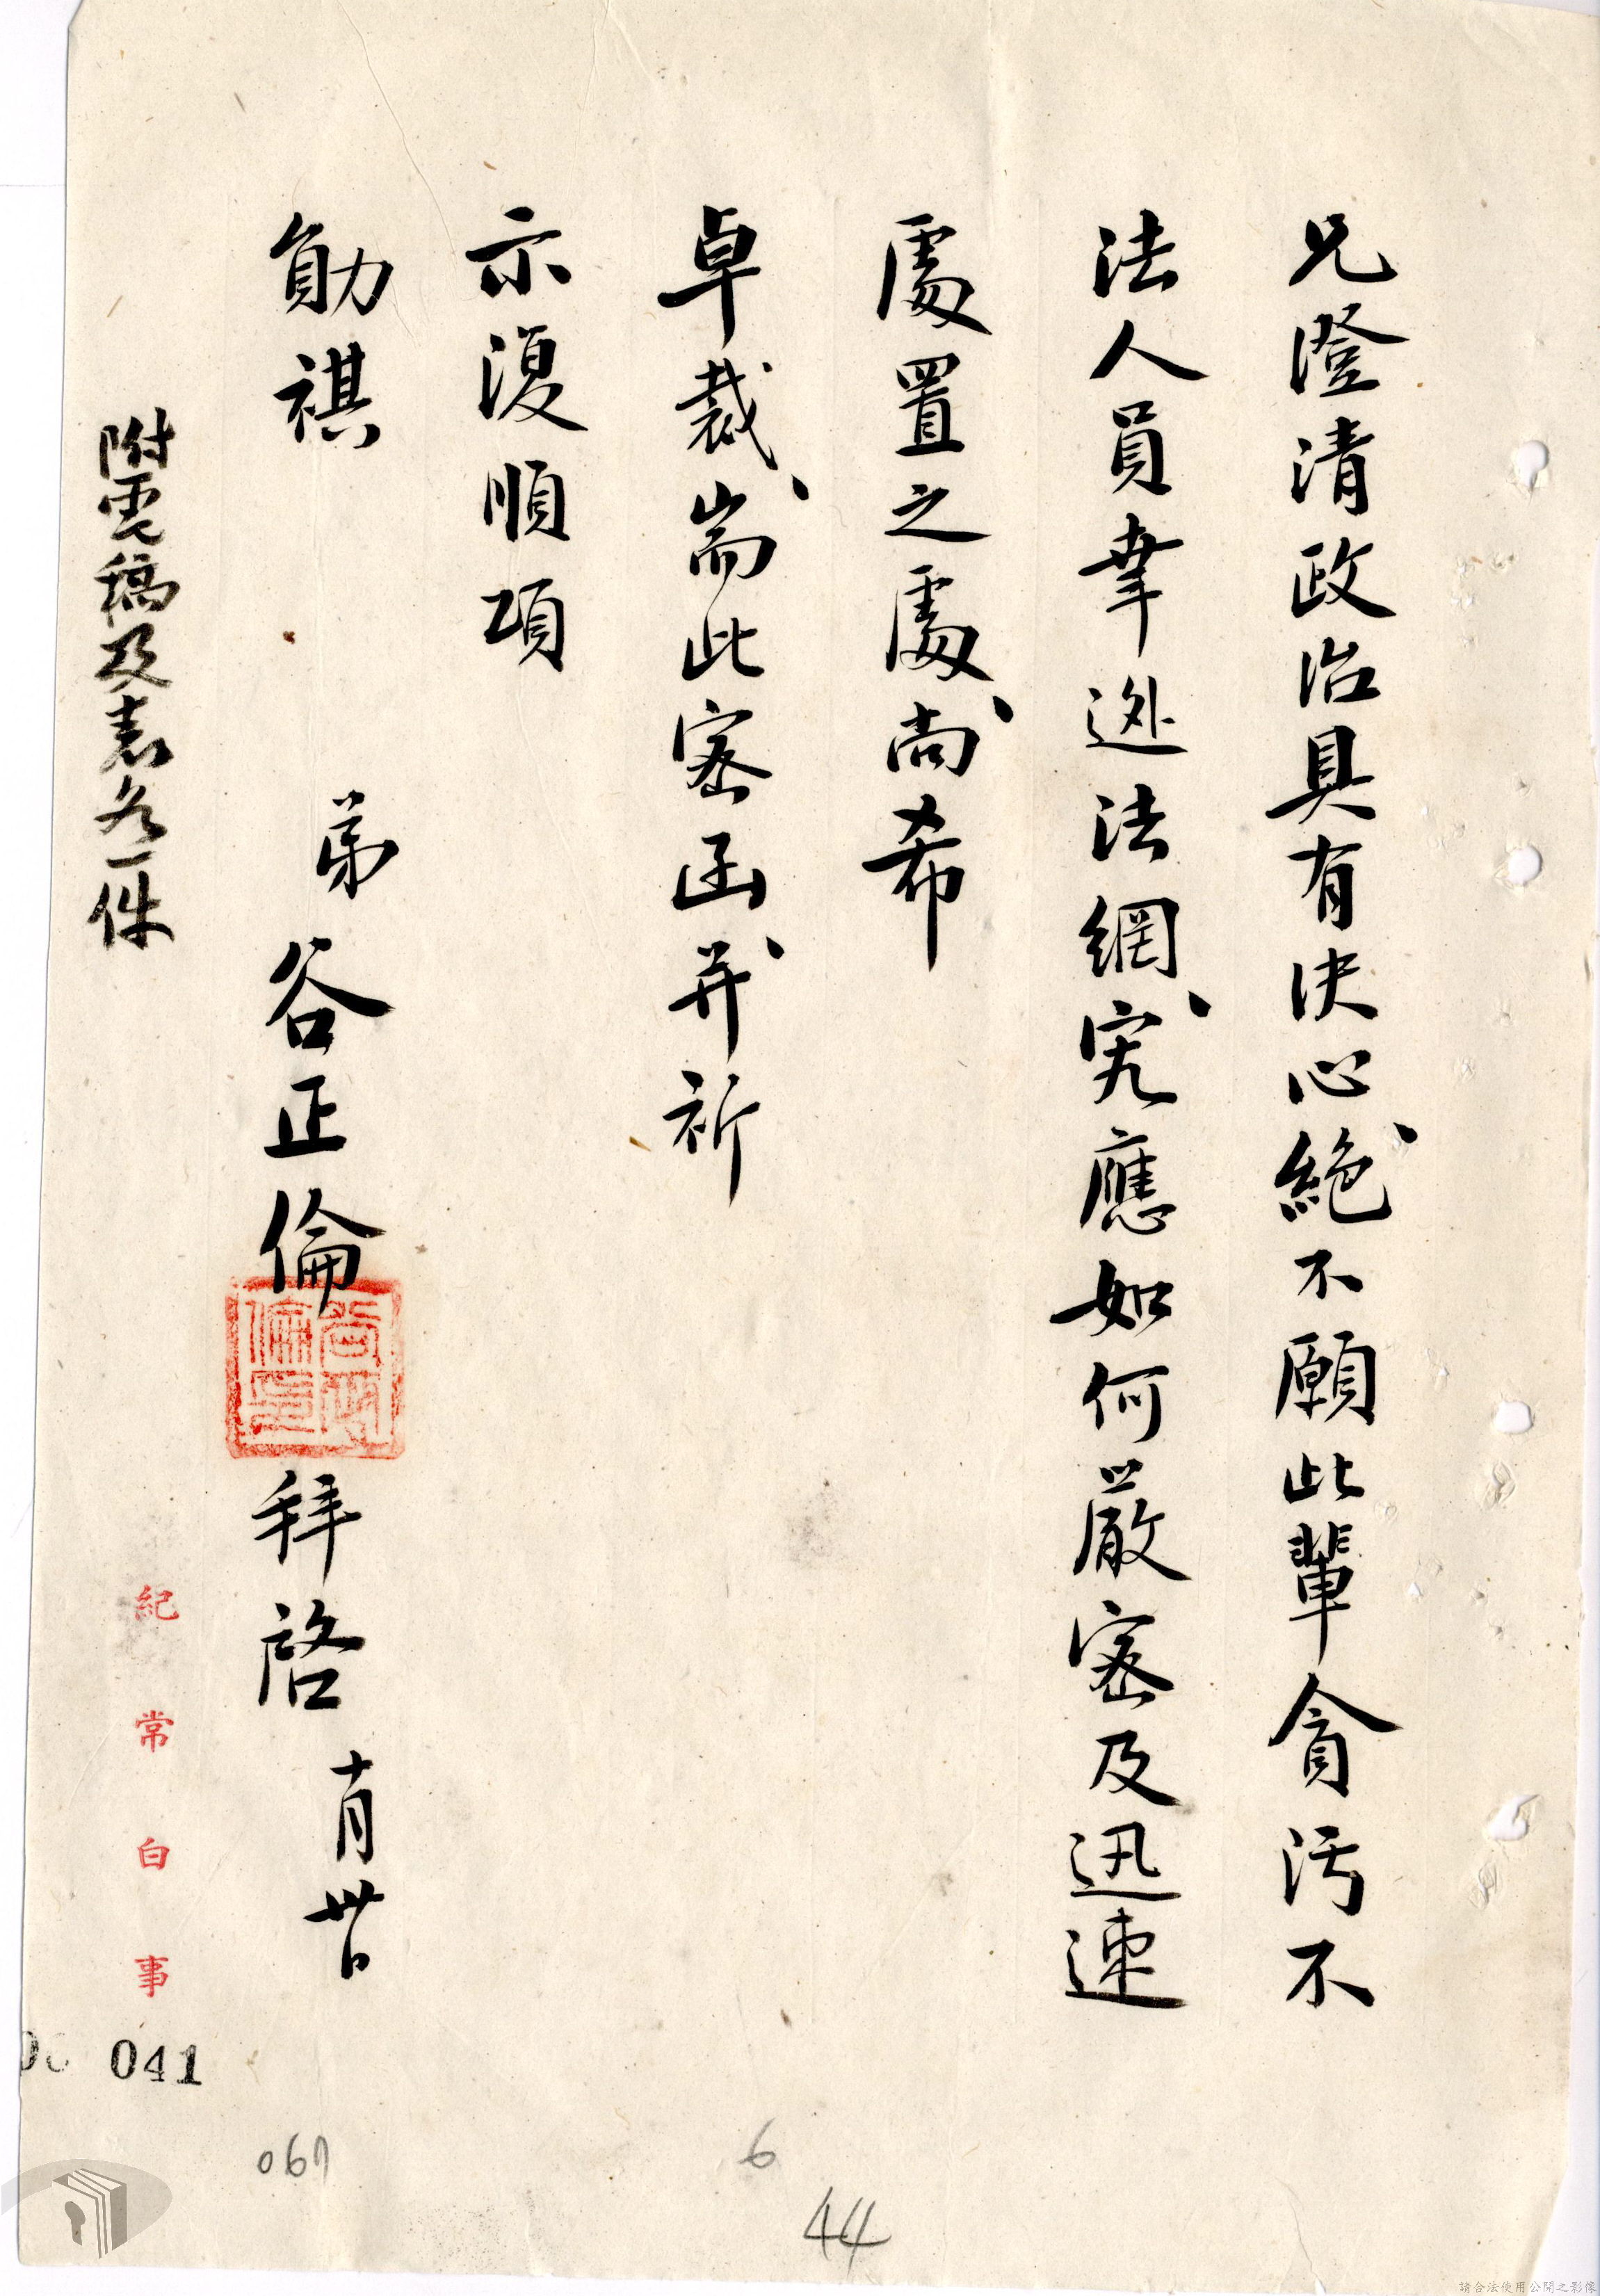 兄澄清政治具有決心、絕不願此輩貪污不
法人員幸逃法網、究應如何嚴密及迅速
處置之處、尚希
卓裁、耑此密函、并祈
示復順頌
勛祺
弟 谷正倫 拜啓 十月廿日
谷正倫印
附電稿及表各一件
紀常白事
041
067
6
44
請合法使用公開之影像